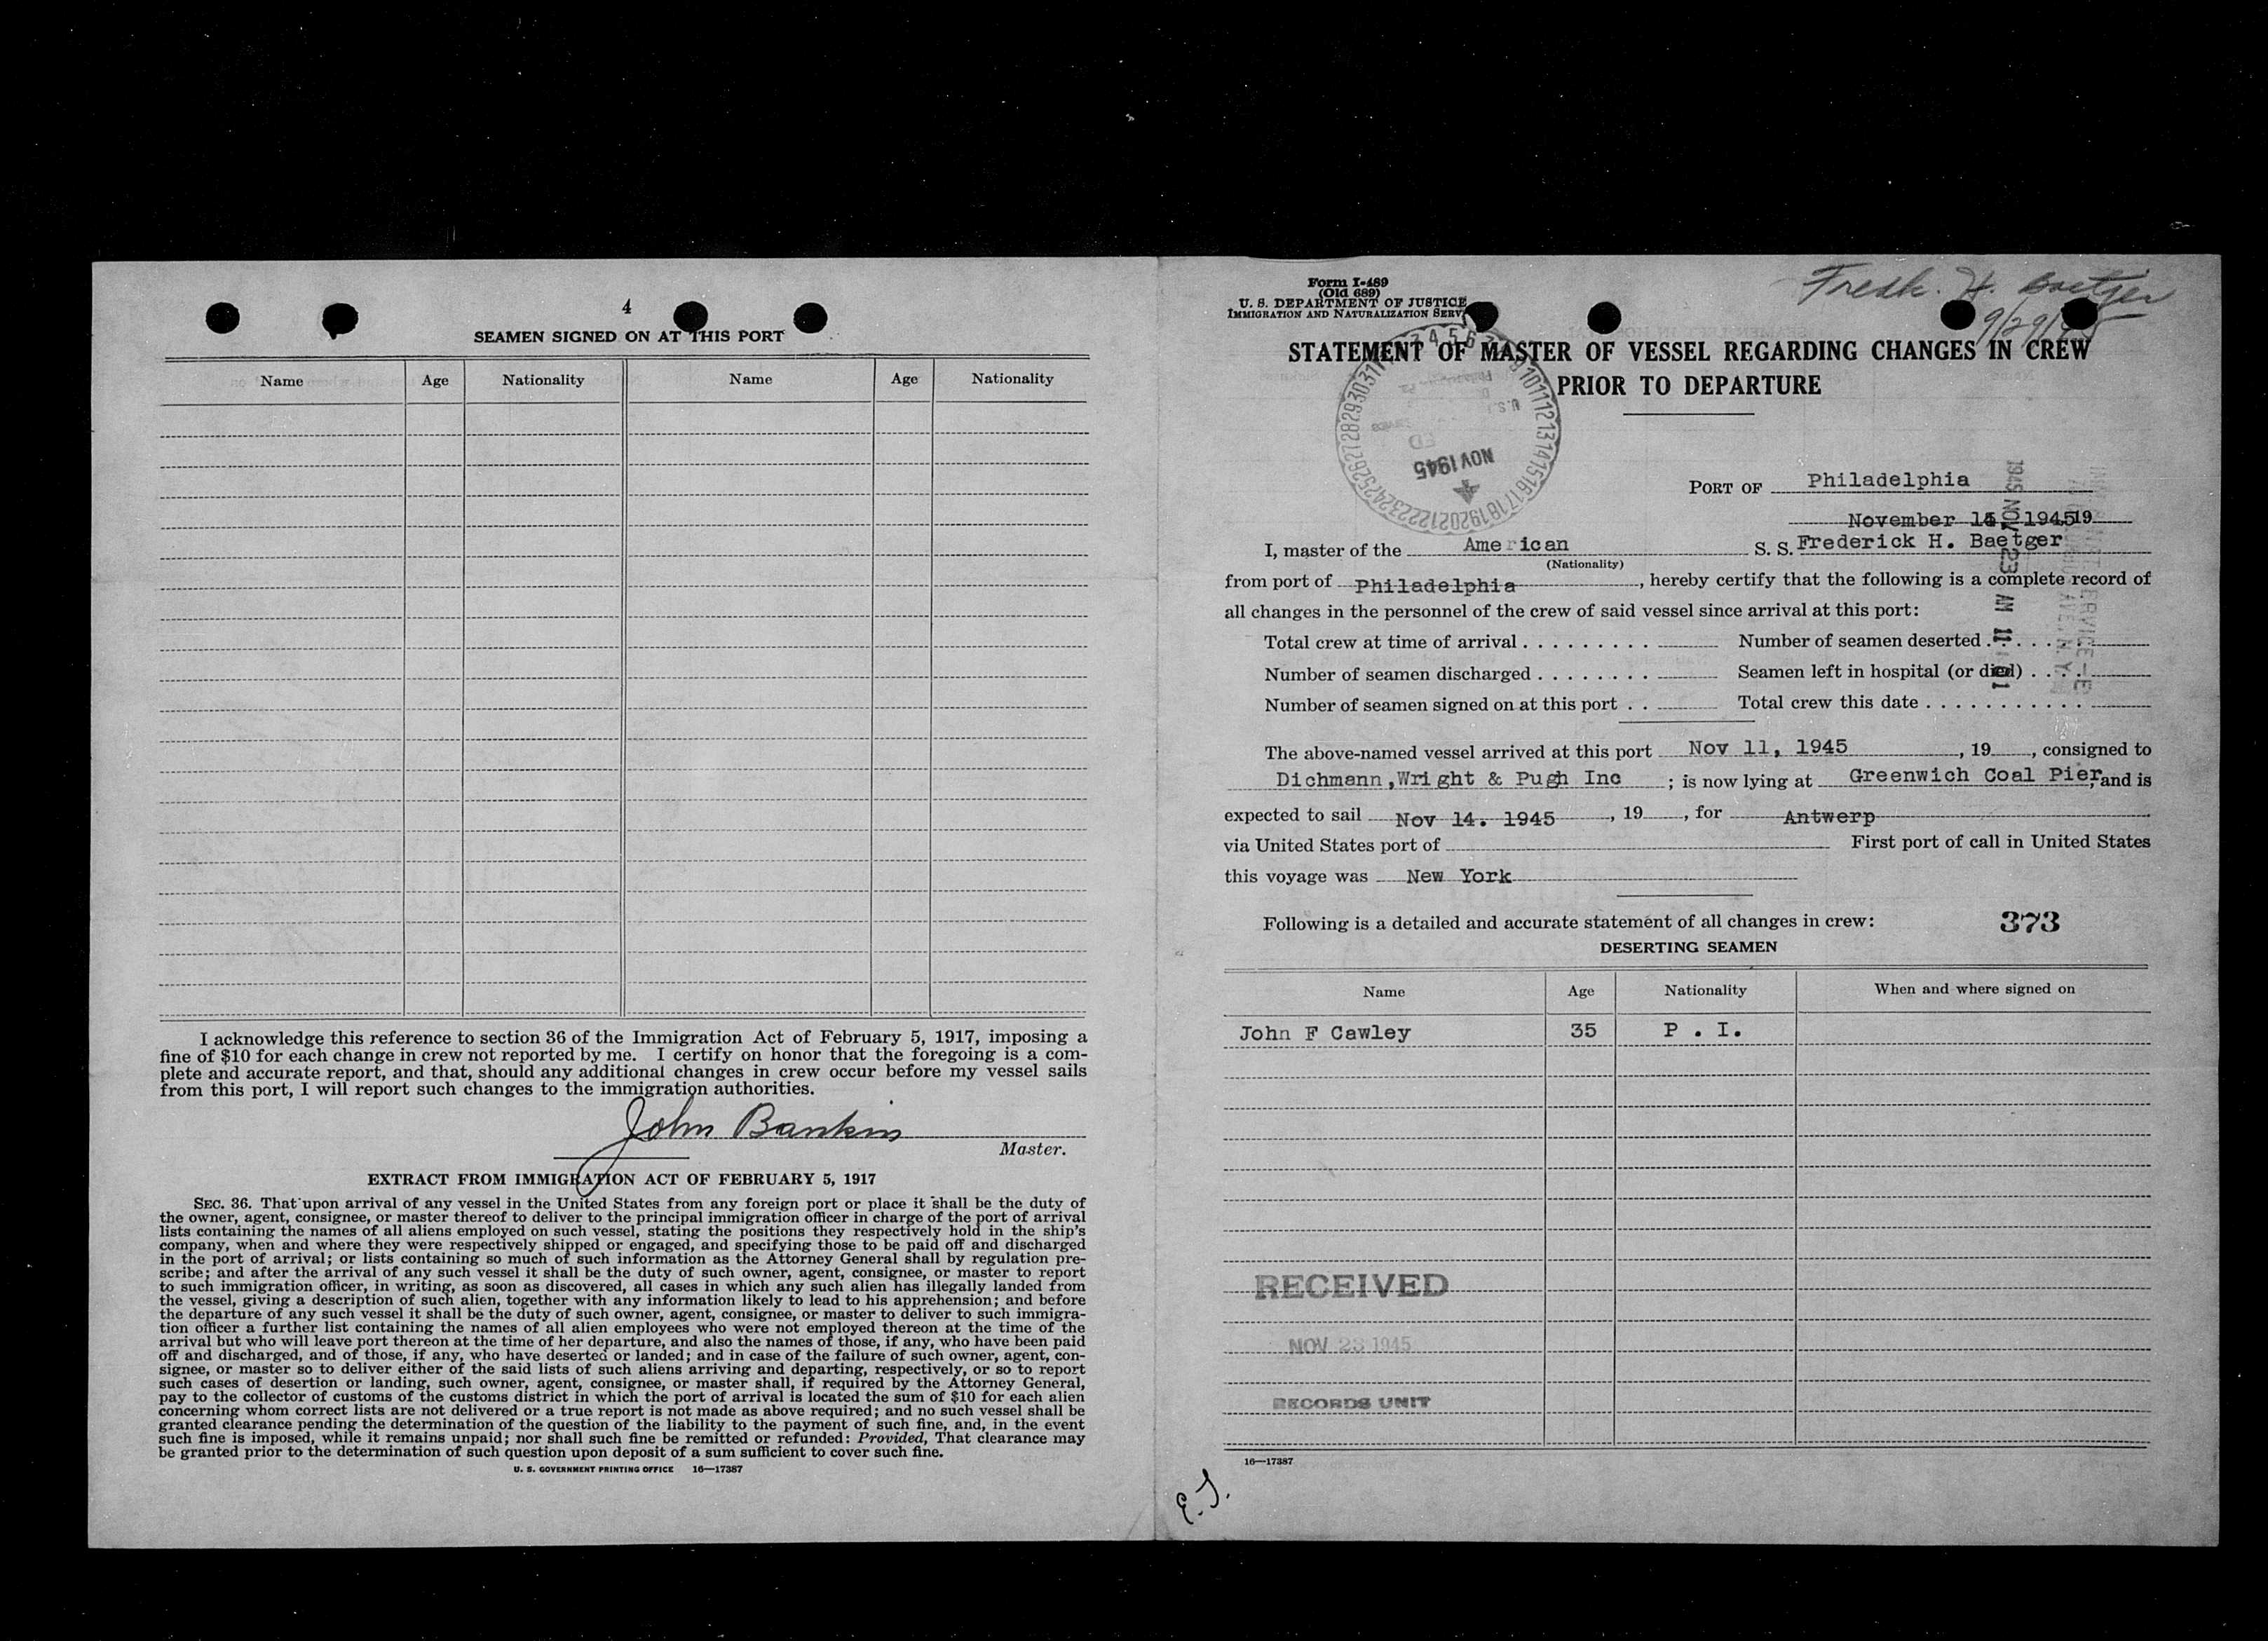 4
SEAMEN SIGNED ON AT THIS PORT
Name Age Nationality Name Age Nationality
I acknowledge this reference to section 36 of the Immigration Act of February 5, 1917, imposing a
fine of $10 for each change in crew not reported by me. I certify on honor that the foregoing is a com-
plete and accurate report, and that, should any additional changes in crew occur before my vessel sails
from this port, I will report such changes to the immigration authorities.
John Bankins
Master.
EXTRACT FROM IMMIGRATION ACT OF FEBRUARY 5, 1917
SEC. 36. That upon arrival of any vessel in the United States from any foreign port or place it shall be the duty of
the owner, agent, consignee, or master thereof to deliver to the principal immigration officer in charge of the port of arrival
lists containing the names of all aliens employed on such vessel, stating the positions they respectively hold in the ship's
company, when and where they were respectively shipped or engaged, and specifying those to be paid off and discharged
in the port of arrival; or lists containing so much of such information as the Attorney General shall by regulation pre-
scribe; and after the arrival of any such vessel it shall be the duty of such owner, agent, consignee, or master to report
to such immigration officer, in writing, as soon as discovered, all cases in which any such alien has illegally landed from
the vessel, giving a description of such alien, together with any information likely to lead to his apprehension; and before
the departure of any such vessel it shall be the duty of such owner, agent, consignee, or master to deliver to such immigra-
tion officer a further list containing the names of all alien employees who were not employed thereon at the time of the
arrival but who will leave port thereon at the time of her departure, and also the names of those, if any, who have been paid
off and discharged, and of those, if any, who have deserted or landed; and in case of the failure of such owner, agent, con-
signee, or master so to deliver either of the said lists of such aliens arriving and departing, respectively, or so to report
such cases of desertion or landing, such owner, agent, consignee, or master shall, if required by the Attorney General,
pay to the collector of customs of the customs district in which the port of arrival is located the sum of $10 for each alien
concerning whom correct lists are not delivered or a true report is not made as above required; and no such vessel shall be
granted clearance pending the determination of the question of the liability to the payment of such fine, and, in the event
such fine is imposed, while it remains unpaid; nor shall such fine be remitted or refunded: Provided, That clearance may
be granted prior to the determination of such question upon deposit of a sum sufficient to cover such fine.
U. S. GOVERNMENT PRINTING OFFICE 16—17387
Form I-489
(Old 689)
U. S. DEPARTMENT OF JUSTICE
IMMIGRATION AND NATURALIZATION SERV
Fredk. H. Baetjer
9/29/
STATEMENT OF MASTER OF VESSEL REGARDING CHANGES IN CREW
PRIOR TO DEPARTURE
NOV 1945
PORT OF Philadelphia
November 1945 19
I, master of the American S. S. Frederick H. Baetger
(Nationality)
from port of Philadelphia, hereby certify that the following is a complete record of
all changes in the personnel of the crew of said vessel since arrival at this port:
Total crew at time of arrival Number of seamen deserted
Number of seamen discharged Seamen left in hospital (or died)
Number of seamen signed on at this port Total crew this date
1945 NOV 23 AM 11 01
The above-named vessel arrived at this port Nov 11, 1945, 19, consigned to
Dichmann,Wright & Pugh Inc; is now lying at Greenwich Coal Pier, and is
expected to sail Nov 14. 1945, 19, for Antwerp
via United States port of First port of call in United States
this voyage was New York
Following is a detailed and accurate statement of all changes in crew: 373
DESERTING SEAMEN
Name Age Nationality When and where signed on
John F Cawley 35 P . I.
RECEIVED
NOV 23 1945
RECORDS UNIT
16—17387